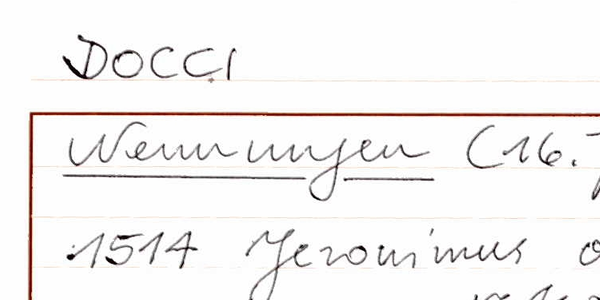 DOCCI
Nennungen (16.
1514 Jeronimus